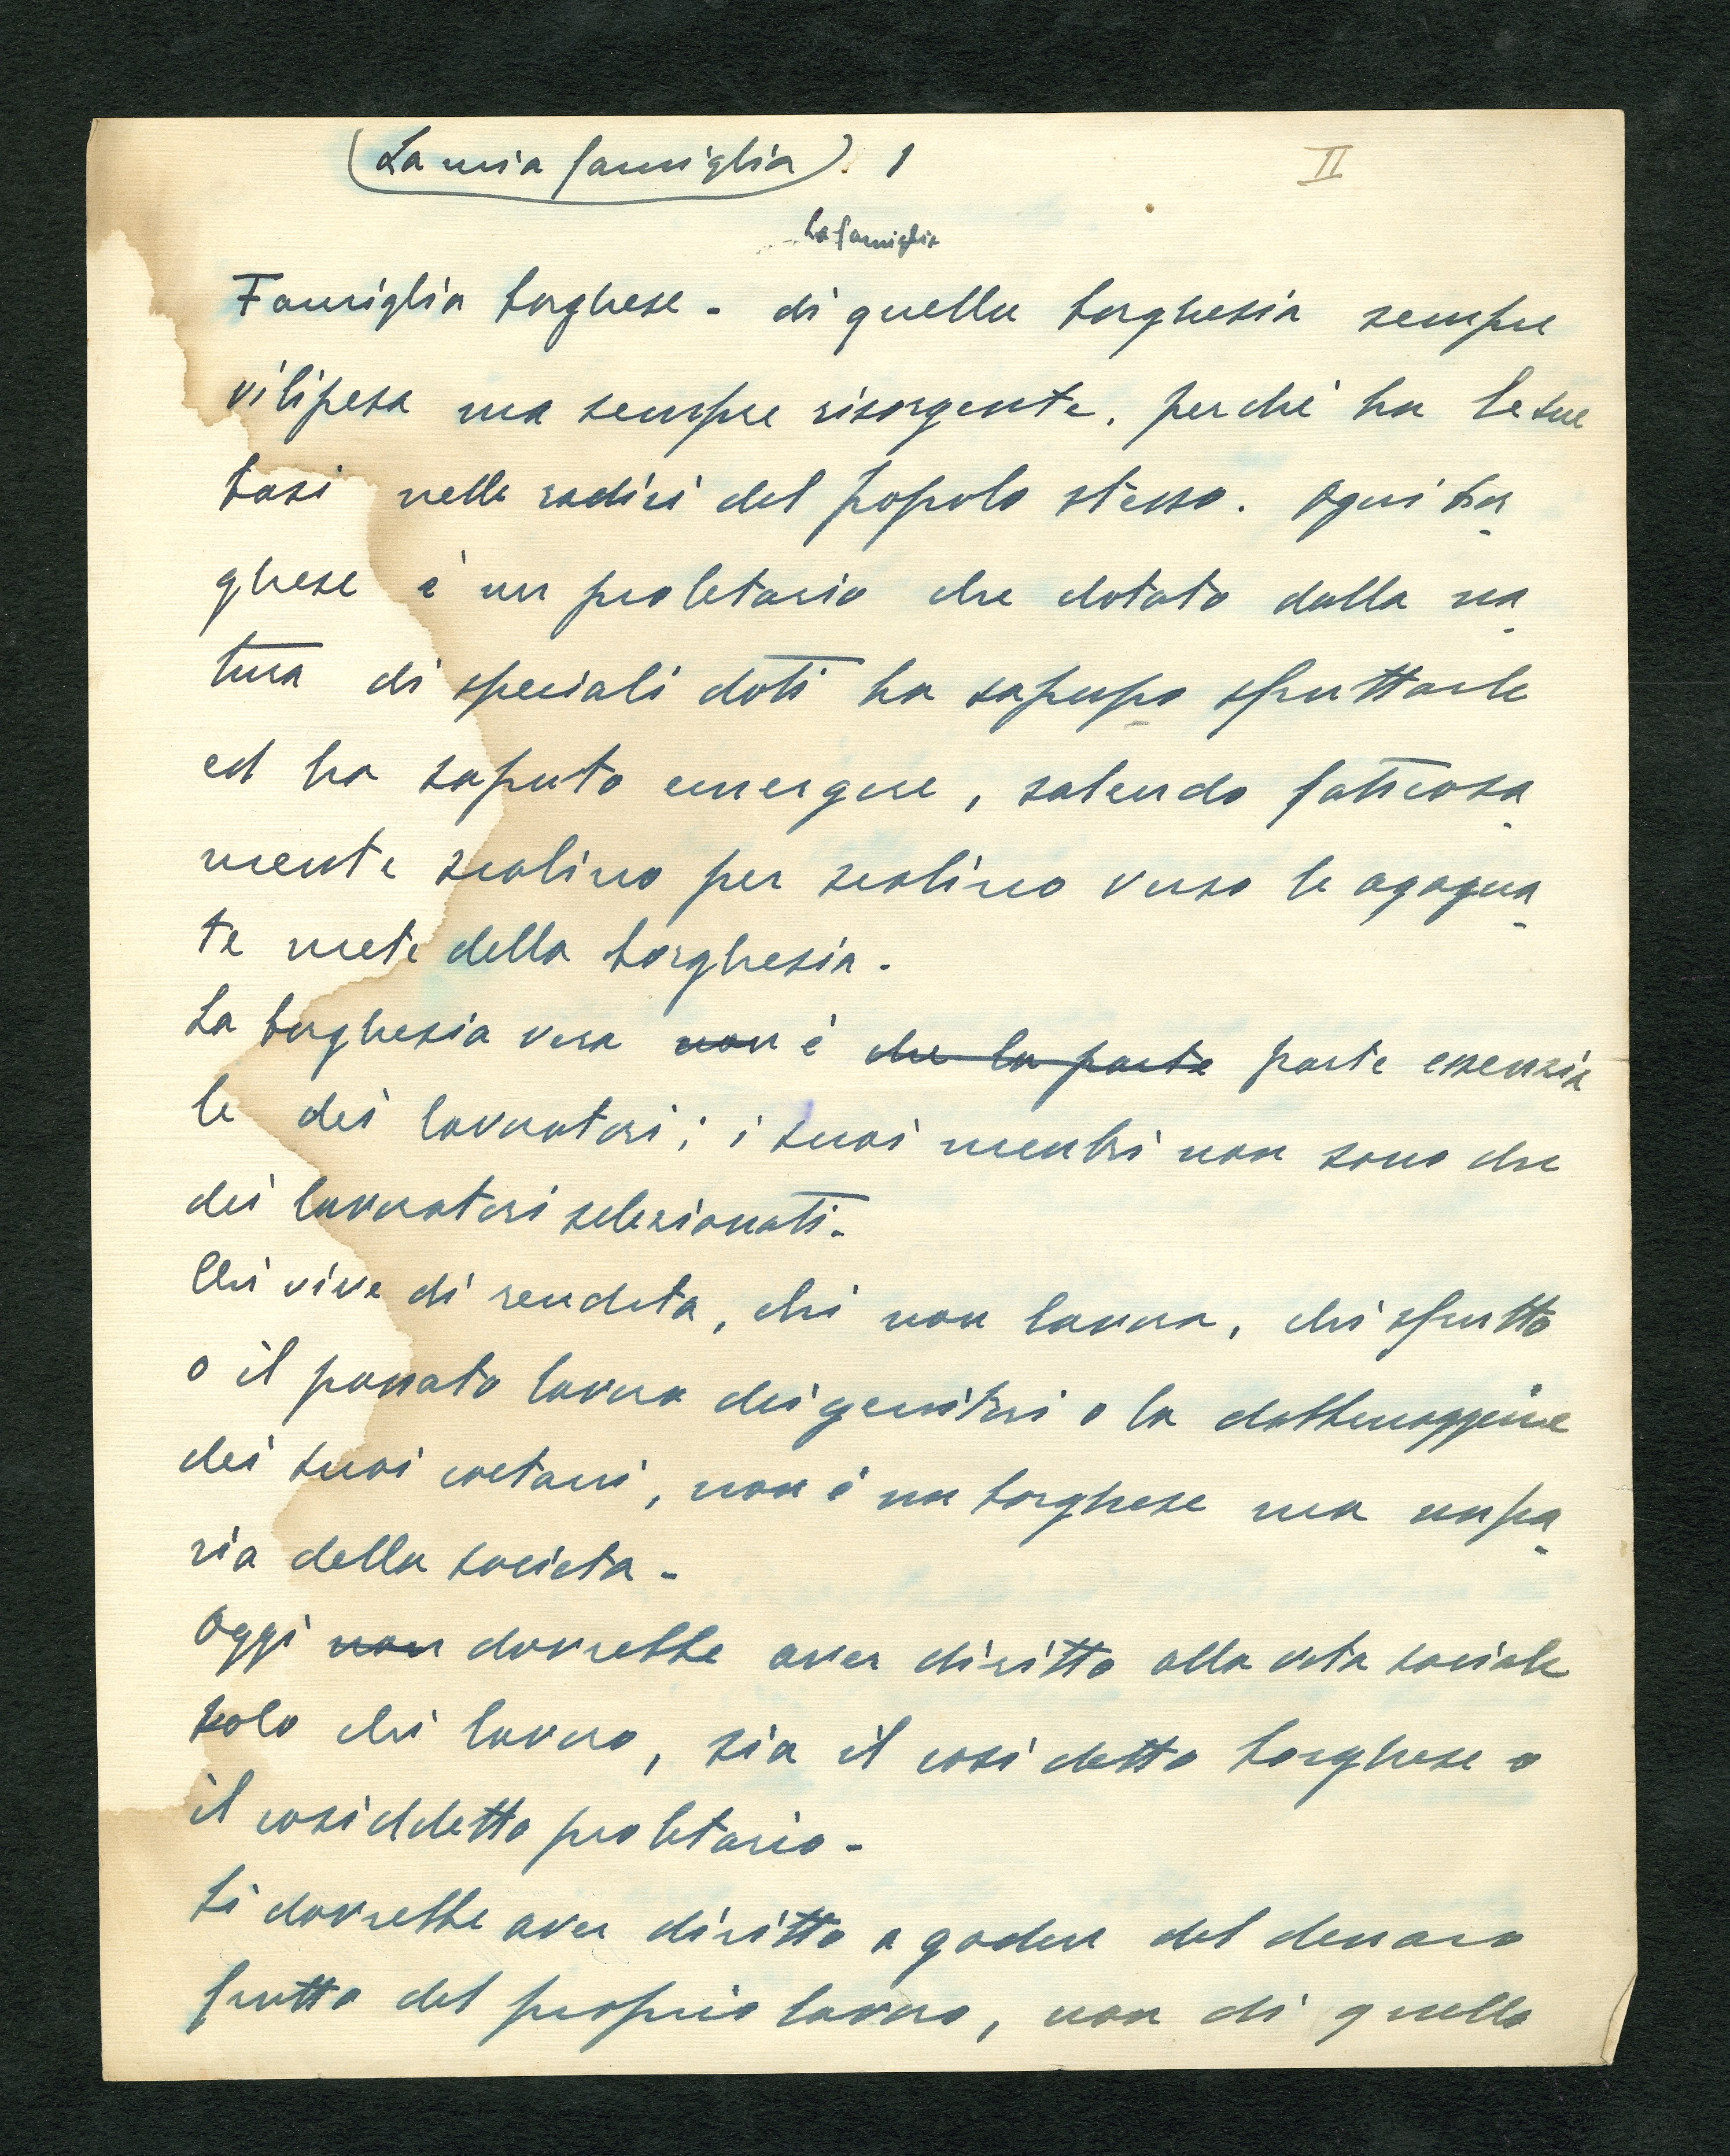 (La mia famiglia). 1
II
La famiglia
Famiglia borghese - di quella borghesia sempre
vilipesa ma sempre risorgente, perchè ha le sue
basi nelle radici del popolo stesso. Ogni bor
ghese è un proletario che dotato dalla na
tura di speciali doti ha sapupo sfruttarle
ed ha saputo emergere, salendo faticosa
mente scalino per scalino verso le agogna
te mete della borghesia.
La borghesia vera non è che la parte parte essenzia
le dei lavoratori; i suoi membri non sono che
dei lavoratori selezionati.
Chi vive di rendita, chi non lavora, chi sfrutta
o il passato lavoro dei genitori o la dabbenaggine
dei suoi coetani, non è un borghese ma un pa
ria della società -
Oggi non dovrebbe aver diritto alla vita sociale
solo chi lavora, sia il cosi detto borghese o
il cosiddetto proletario -
Si dovrebbe aver diritto a godere del denaro
frutto del proprio lavoro, non di quello